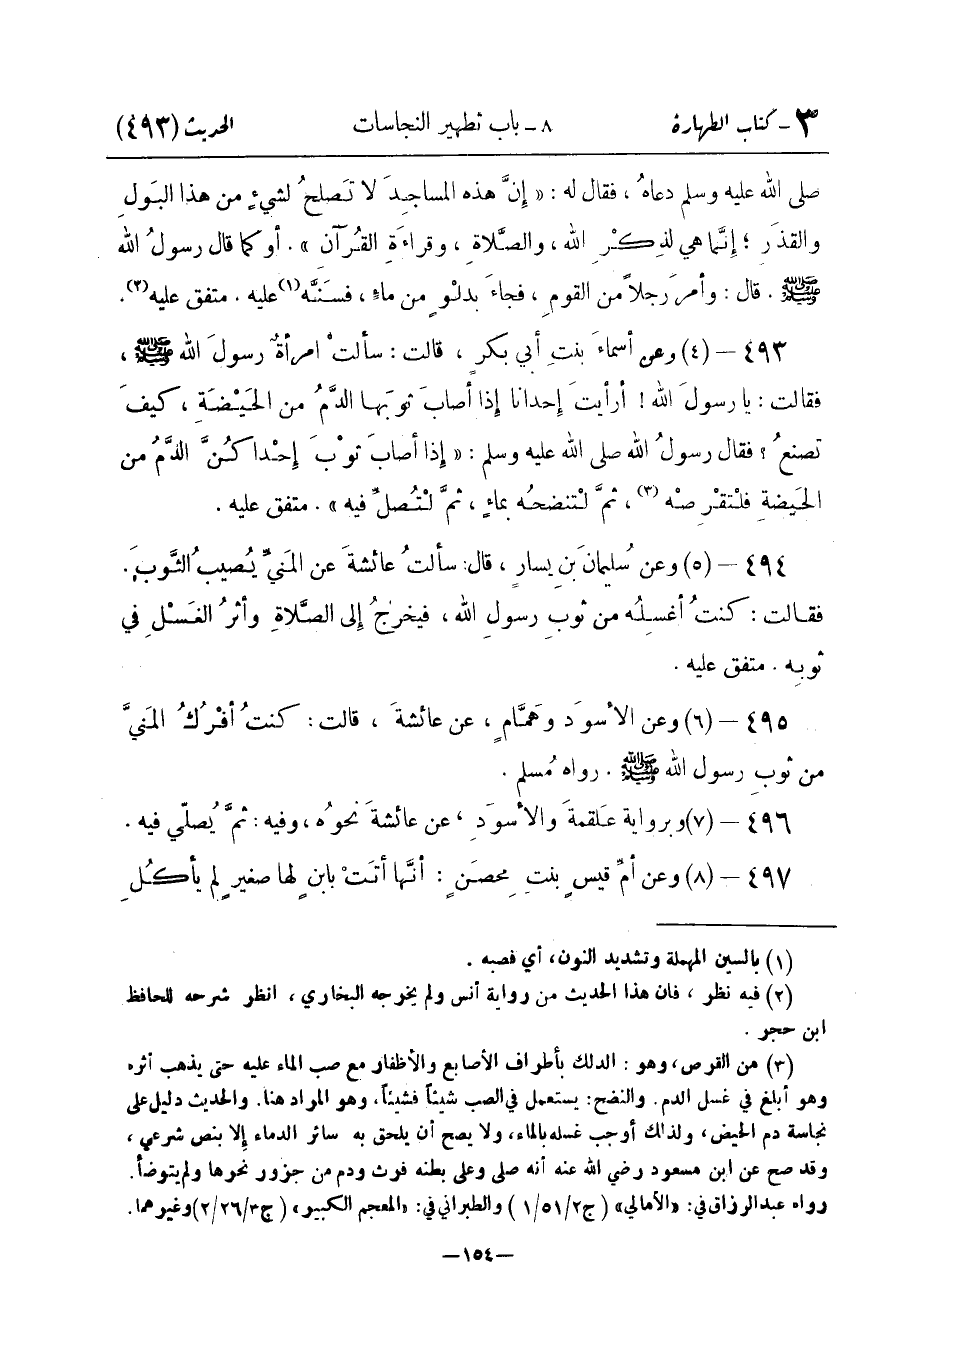 ٣ - كتاب الطهارة ٨ - باب تطهير النجاسات الحديث (٤٩٣)
صلى الله عليه وسلم دعاهُ ، فقال له : « إنَّ هذه المساجدَ لا تَصلحُ لشيءٍ من هذا البَولِ
والقذَر ؛ إنَّما هي لذِكْرِ الله ، والصَّلاةِ ، وقراءَةِ القُرآن » . أو كما قال رسولُ الله
ﷺ . قال : وأمرَ رجلاً من القومِ ، فجاءَ بدلوٍ من ماءٍ ، فسَنَّه (١) عليه . متفق عليه (٢) .
٤٩٣ – (٤) وعن أسماءَ بنتِ أبي بكرٍ ، قالت : سألتْ امرأةٌ رسولَ الله ﷺ ،
فقالت : يا رسولَ الله ! أرأيتَ إحدانا إذا أصابَ ثوبَها الدَّمُ من الحَيْضَةِ ، كيفَ
تصنعُ ؟ فقال رسولُ الله صلى الله عليه وسلم : « إذا أصابَ ثوْبَ إحْداكُنَّ الدَّمُ من
الحَيضةِ فلْتَقْرِصْه (٣) ، ثمَّ لْتنضحْه بماءٍ ، ثمَّ لْتُصلِّ فيه » . متفق عليه .
٤٩٤ – (٥) وعن سُليمانَ بنِ يسارٍ ، قال: سألتُ عائشةَ عن المَنيِّ يُصيبُ الثَّوبَ .
فقالت : كنتُ أغسِلُه من ثوبِ رسولِ الله ، فيخرجُ إلى الصَّلاةِ وأثرُ الغَسْلِ في
ثوبِه . متفق عليه .
٤٩٥ – (٦) وعن الأسوَد وهَمَّامٍ ، عن عائشةَ ، قالت : كنتُ أفْرُكُ المَنيَّ
من ثوبِ رسول الله ﷺ . رواه مُسلم .
٤٩٦ – (٧) وبرواية عَلقمةَ والأسوَدِ ، عن عائشةَ نحوُه ، وفيه : ثمَّ يُصلّي فيه .
٤٩٧ – (٨) وعن أمِّ قيسٍ بنتِ مِحصَنٍ : أنَّها أتَتْ بابنٍ لها صغيرٍ لم يأكُلِ
(١) بالسين المهملة وتشديد النون، أي فصبه .
(٢) فيه نظر ، فان هذا الحديث من رواية أنس ولم يخرجه البخاري ، انظر شرحه للحافظ
ابن حجر .
(٣) من القرص، وهو : الدلك بأطراف الأصابع والأظفار مع صب الماء عليه حتى يذهب أثره
وهو أبلغ في غسل الدم. والنضح: يستعمل في الصب شيئاً فشيئاً، وهو المراد هنا. والحديث دليل على
نجاسة دم الحيض، ولذلك أوجب غسله بالماء، ولا يصح أن يلحق به سائر الدماء إلا بنص شرعي ،
وقد صح عن ابن مسعود رضي الله عنه أنه صلى وعلى بطنه فرث ودم من جزور نحوها ولم يتوضأ.
رواه عبدالرزاق في: «الأمالي» ( ج٢/٥١/١ ) والطبراني في: «المعجم الكبير» ( ج٣/٢٦/٢) وغيرهما.
—١٥٤—